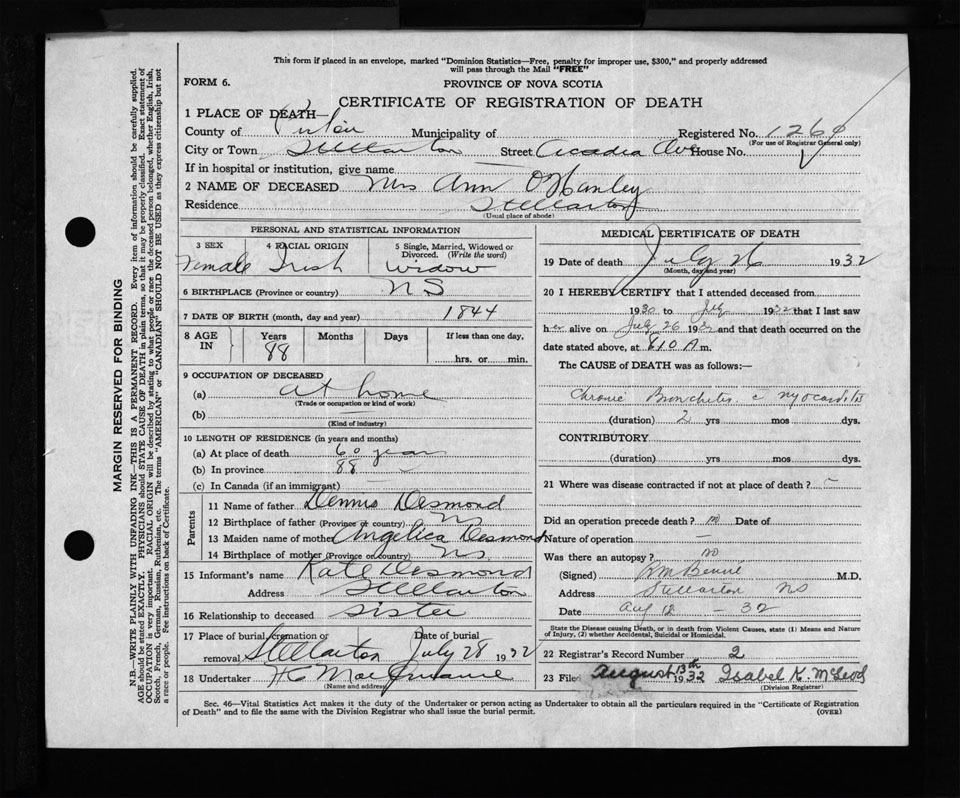 This form if placed in an envelope, marked "Dominion Statistics—Free, penalty for improper use, $300," and properly addressed
will pass through the Mail "FREE"
FORM 6.
PROVINCE OF NOVA SCOTIA
CERTIFICATE OF REGISTRATION OF DEATH
1 PLACE OF DEATH—
County of Pictou Municipality of Registered No. 1260
(For use of Registrar General only)
City or Town Stellarton Street Acadia Ave House No.
If in hospital or institution, give name —
2 NAME OF DECEASED Mrs Ann O'Hanley
Residence Stellarton
(Usual place of abode)
PERSONAL AND STATISTICAL INFORMATION
3 SEX 4 RACIAL ORIGIN 5 Single, Married, Widowed or Divorced. (Write the word)
Female Irish widow
6 BIRTHPLACE (Province or country) NS
7 DATE OF BIRTH (month, day and year) 1844
8 AGE IN Years Months Days If less than one day,
88 hrs. or min.
9 OCCUPATION OF DECEASED
(a) at home
(Trade or occupation or kind of work)
(b) —
(Kind of industry)
10 LENGTH OF RESIDENCE (in years and months)
(a) At place of death 60 years
(b) In province 88 —
(c) In Canada (if an immigrant)
Parents
11 Name of father Dennis Desmond
12 Birthplace of father (Province or country) NS
13 Maiden name of mother Angelica Desmond
14 Birthplace of mother (Province or country) NS
15 Informant's name Kate Desmond
Address Stellarton
16 Relationship to deceased sister
17 Place of burial, cremation or removal Stellarton Date of burial July 28 1932
18 Undertaker
(Name and address)
MEDICAL CERTIFICATE OF DEATH
19 Date of death July 26 1932
(Month, day and year)
20 I HEREBY CERTIFY that I attended deceased from
1930 to July 1932 that I last saw
her alive on July 26 1932 and that death occurred on
date stated above, at 8.10 A m.
The CAUSE of DEATH was as follows:—
Chronic Bronchitis c Myocarditis
(duration) 2 yrs mos dys.
CONTRIBUTORY
(duration) yrs mos dys.
21 Where was disease contracted if not at place of death? —
Did an operation precede death? no Date of
Nature of operation —
Was there an autopsy? no
(Signed) M.D.
Address Stellarton NS
Date Aug 12 - 32
State the Disease causing Death, or in death from Violent Causes, state (1) Means and Nature
of Injury, (2) whether Accidental, Suicidal or Homicidal.
22 Registrar's Record Number 2
23 Filed August 13th 1932 Isabel K. McLeod
(Division Registrar)
Sec. 46—Vital Statistics Act makes it the duty of the Undertaker or person acting as Undertaker to obtain all the particulars required in the "Certificate of Registration
of Death" and to file the same with the Division Registrar who shall issue the burial permit. (OVER)
MARGIN RESERVED FOR BINDING
N.B.—WRITE PLAINLY WITH UNFADING INK—THIS IS A PERMANENT RECORD. Every item of information should be carefully supplied.
AGE should be stated EXACTLY. PHYSICIANS should STATE CAUSE OF DEATH in plain terms, so that it may be properly classified. Exact statement of
OCCUPATION is very important. RACIAL ORIGIN will be described by stating to what people or race the deceased person belonged, whether English, Irish,
Scotch, French, German, Russian, Ruthenian, etc. The terms "AMERICAN" or "CANADIAN" SHOULD NOT BE USED as they express citizenship but not
a race or people. See instructions on back of Certificate.